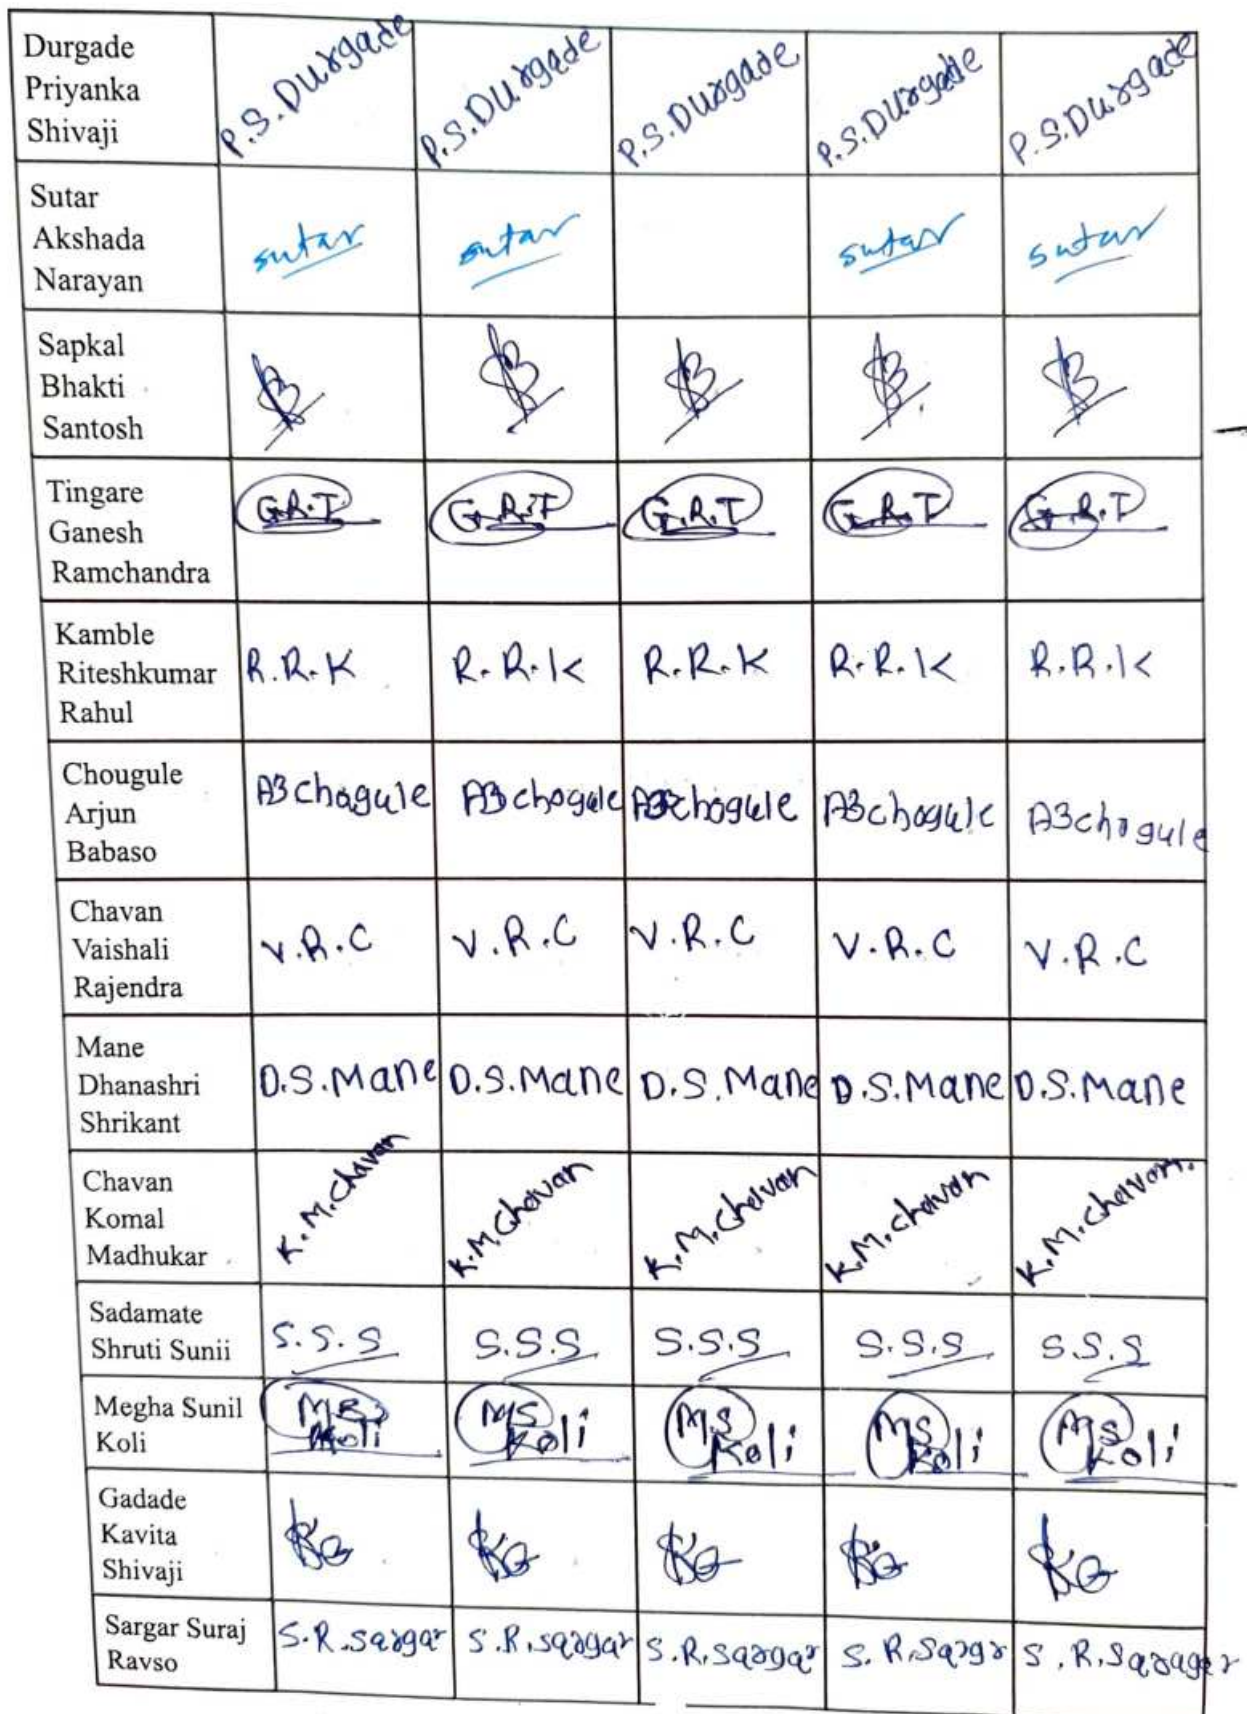 Durgade
Priyanka
Shivaji
P.S.Durgade P.S.Durgade P.S.Durgade P.S.Durgade P.S.Durgade
Sutar
Akshada
Narayan
sutar sutar sutar sutar
Sapkal
Bhakti
Santosh
Tingare
Ganesh
Ramchandra
G.R.T G.R.T G.R.T G.R.T G.R.T
Kamble
Riteshkumar
Rahul
R.R.K R.R.K R.R.K R.R.K R.R.K
Chougule
Arjun
Babaso
ABchagule ABchogule ABchogule ABchogule ABchogule
Chavan
Vaishali
Rajendra
V.R.C V.R.C V.R.C V.R.C V.R.C
Mane
Dhanashri
Shrikant
D.S.Mane D.S.Mane D.S.Mane D.S.Mane D.S.Mane
Chavan
Komal
Madhukar
K.M.Chavan K.M.Chavan K.M.Chavan K.M.chavan K.M.chavan.
Sadamate
Shruti Sunii
S.S.S S.S.S S.S.S S.S.S S.S.S
Megha Sunil
Koli
MS MS MS MS MS
Koli Koli Koli Koli Koli
Gadade
Kavita
Shivaji
KG KG KG KG KG
Sargar Suraj
Ravso
S.R.Sargar S.R.Sargar S.R.Sargar S.R.Sargr S.R.Saragar